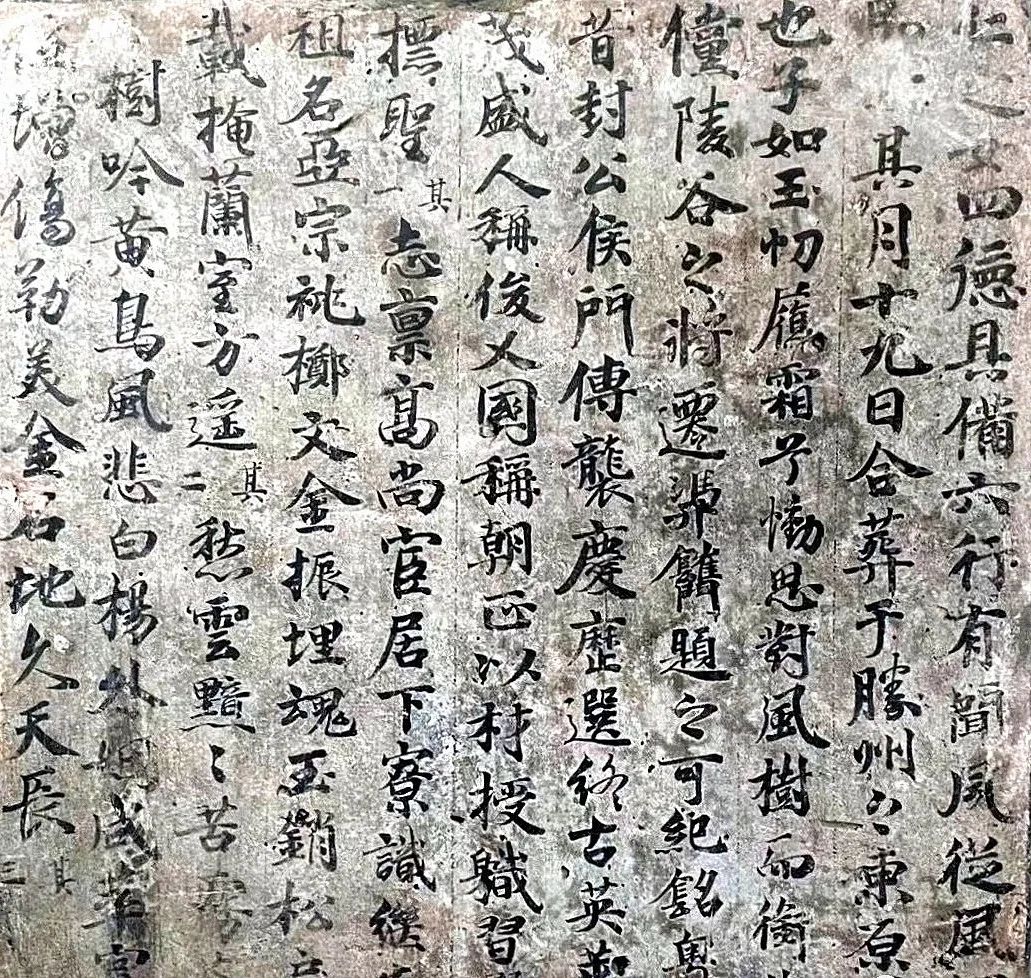 四德具備六行有聞風從風
其月十九日合葬于勝州々東原
也子如玉切膺霜兮慟思對風樹而銜
僮陵谷之將遷轝儁題之可紀銘粵
昔封公侯門傳襲慶歷選終古英
茂盛人稱俊乂國稱朝正以材授職習
摽聖其一志禀高尚官居下寮讖繼
祖名亞宗祧擲文金振埋魂玉銷松
載掩蘭室方遥其二愁雲黯々苦霧
樹吟黄鳥風悲白楊
增傷勒美金石地久天長其三